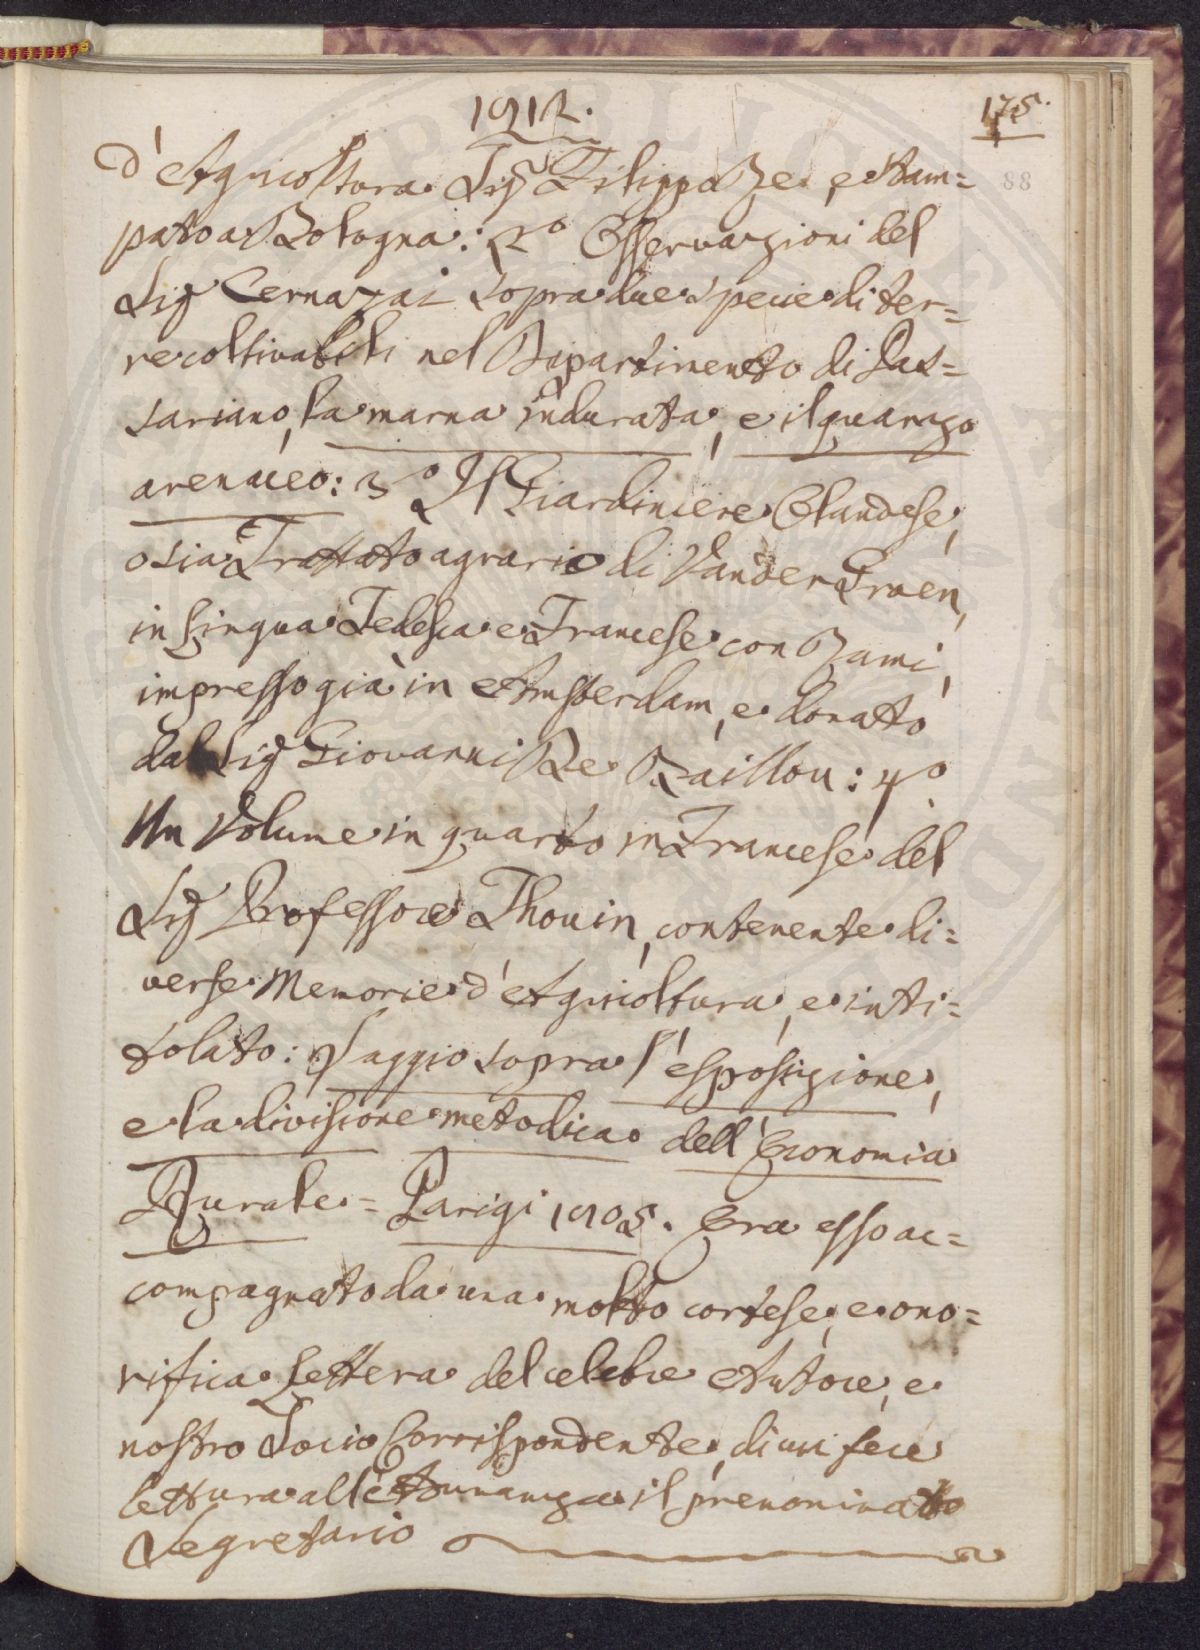 1812.
175.
88
d'Agricoltura Sig.r Filippo Re, e stam=
pato a Bologna: 2.o Osservazioni del
Sig.r Cernazai sopra due specie di ter=
re coltivabili nel Dipartimento di Pas=
sariano, la marna indurata, e il quarzo
arenaceo: 3.o Il Giardiniere Olandese,
o sia Trattato agrario di Vander Groen,
in Lingua Tedesca e Francese con Rami,
impresso già in Amsterdam, e donato
dal Sig.r Giovanni De Baillou: 4.o
Un Volume in quarto in Francese del
Sig.r Professore Thouin, contenente di=
verse Memorie d'Agricoltura, e inti=
tolato: Saggio sopra l'esposizione,
e la divisione metodica dell'Economia
Rurale = Parigi 1805. Era esso ac=
compagnato da una molto cortese, e ono=
rifica Lettera del celebre Autore, e
nostro Socio Corrispondente, di cui fece
lettura all'Adunanza il prenominato
Segretario